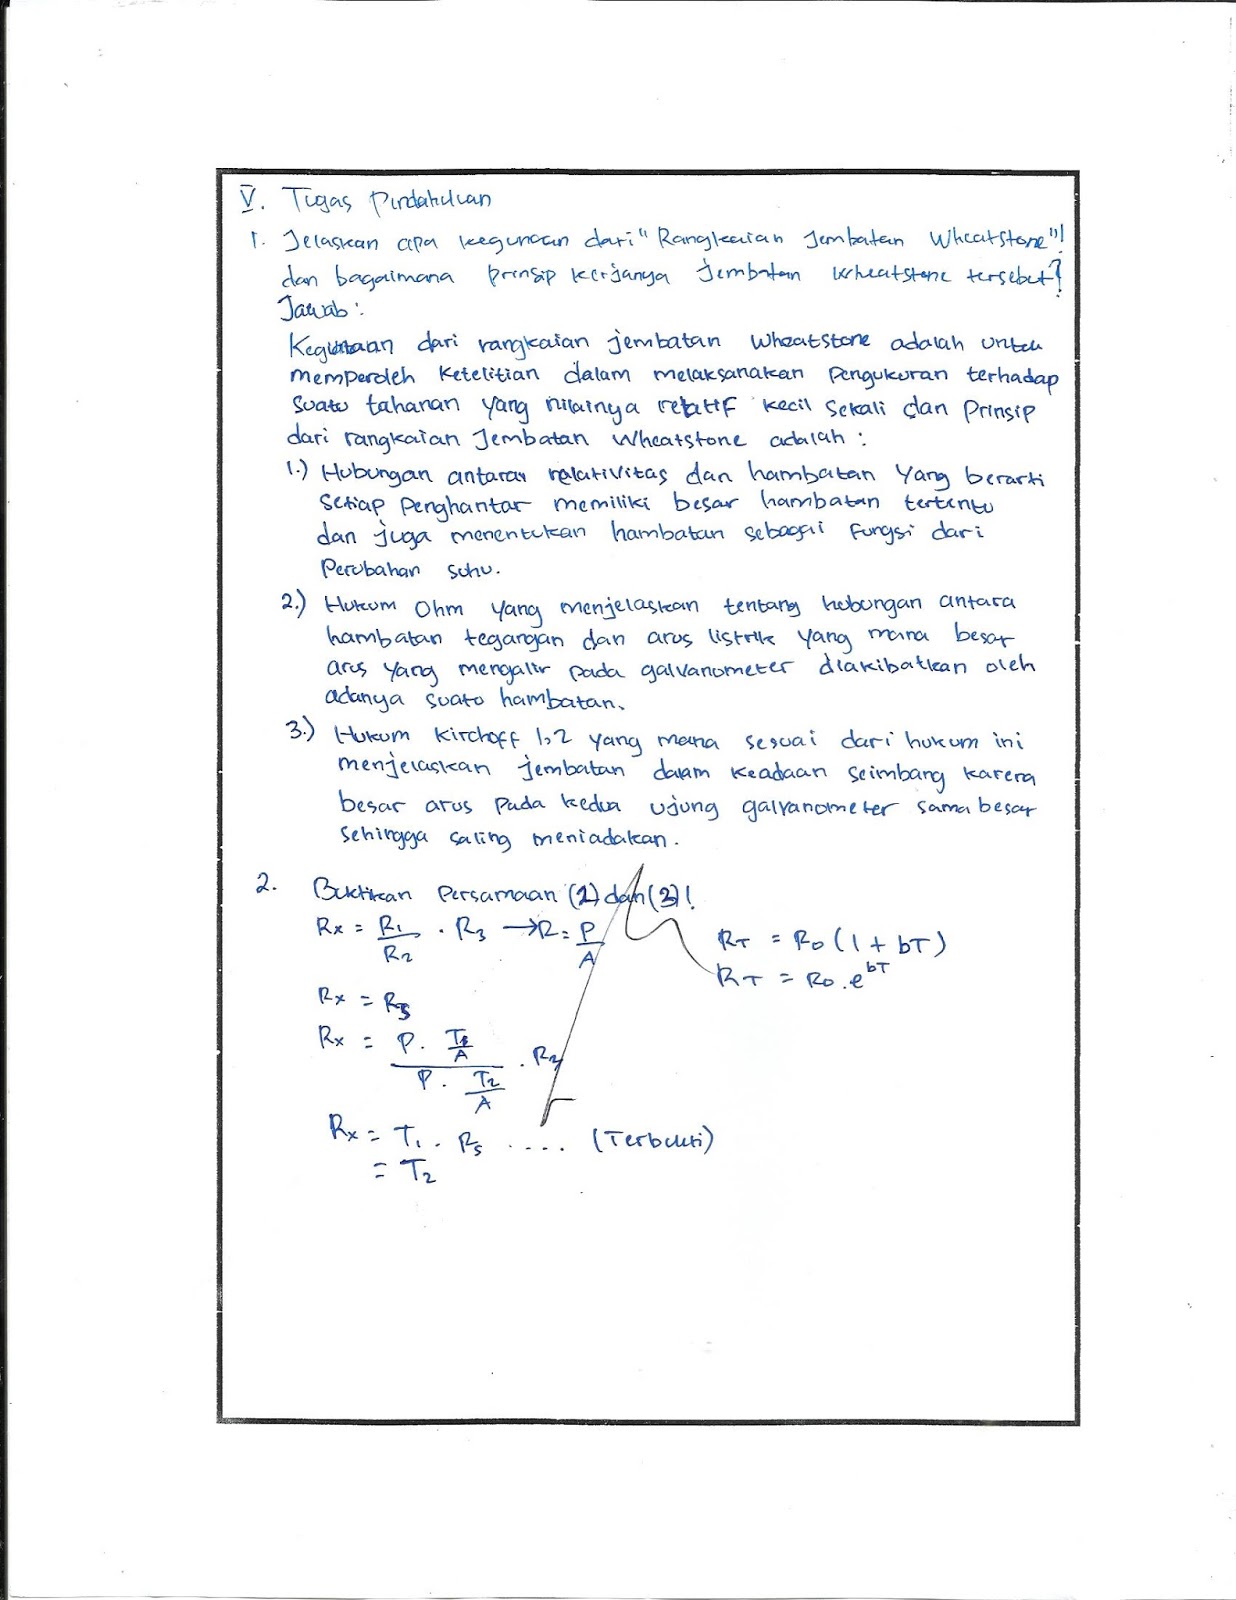 V. Tugas Pendahuluan
1. Jelaskan apa kegunaan dari "Rangkaian Jembatan Wheatstone"!
dan bagaimana prinsip kerjanya jembatan wheatstone tersebut?
Jawab :
Kegunaan dari rangkaian jembatan wheatstone adalah untuk
memperoleh ketelitian dalam melaksanakan pengukuran terhadap
suatu tahanan yang nilainya relatif kecil sekali dan Prinsip
dari rangkaian Jembatan Wheatstone adalah :
1.) Hubungan antara relativitas dan hambatan yang berarti
setiap penghantar memiliki besar hambatan tertentu
dan juga menentukan hambatan sebagai fungsi dari
perubahan suhu.
2.) Hukum Ohm yang menjelaskan tentang hubungan antara
hambatan tegangan dan arus listrik yang mana besar
arus yang mengalir pada galvanometer diakibatkan oleh
adanya suatu hambatan.
3.) Hukum Kirchoff 1,2 yang mana sesuai dari hukum ini
menjelaskan jembatan dalam keadaan seimbang karena
besar arus pada kedua ujung galvanometer sama besar
sehingga saling meniadakan.
2. Buktikan Persamaan (2) dan (3)!
Rx = R1/R2 . R3 → R = P/A
RT = R0 (1 + bT)
RT = R0 . e^bT
Rx = R3
Rx = P . T1/A / P . T2/A . R3
Rx = T1 . Rs .... (Terbukti)
= T2